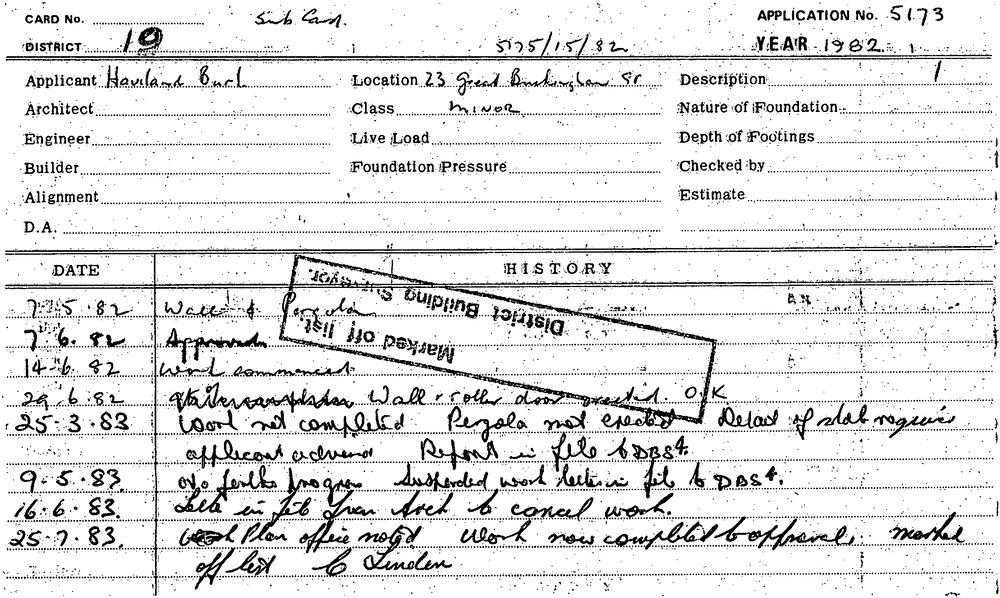 CARD No. Sub Card. APPLICATION No. 5173
DISTRICT 10 5175/15/82 YEAR 1982
Applicant Haviland Burl Location 23 Great Buckingham St Description 1
Architect Class MINOR Nature of Foundation
Engineer Live Load Depth of Footings
Builder Foundation Pressure Checked by
Alignment Estimate
D.A.
DATE HISTORY
7.5.82 Wall & Pergola
7.6.82 Approved
14.6.82 Work commenced
29.6.82 Wall & roller door erected. O.K
25.3.83 Work not completed Pergola not erected Detail of slab required
applicant advised Report in file to DBS
9.5.83. No further progress Suspended work letter in file to DBS.
16.6.83. Letter in file from Arch to cancel work.
25.7.83. Plan office noted Work now completed to approval, marked
off list C Linden
Marked off list
District Building Surveyor.